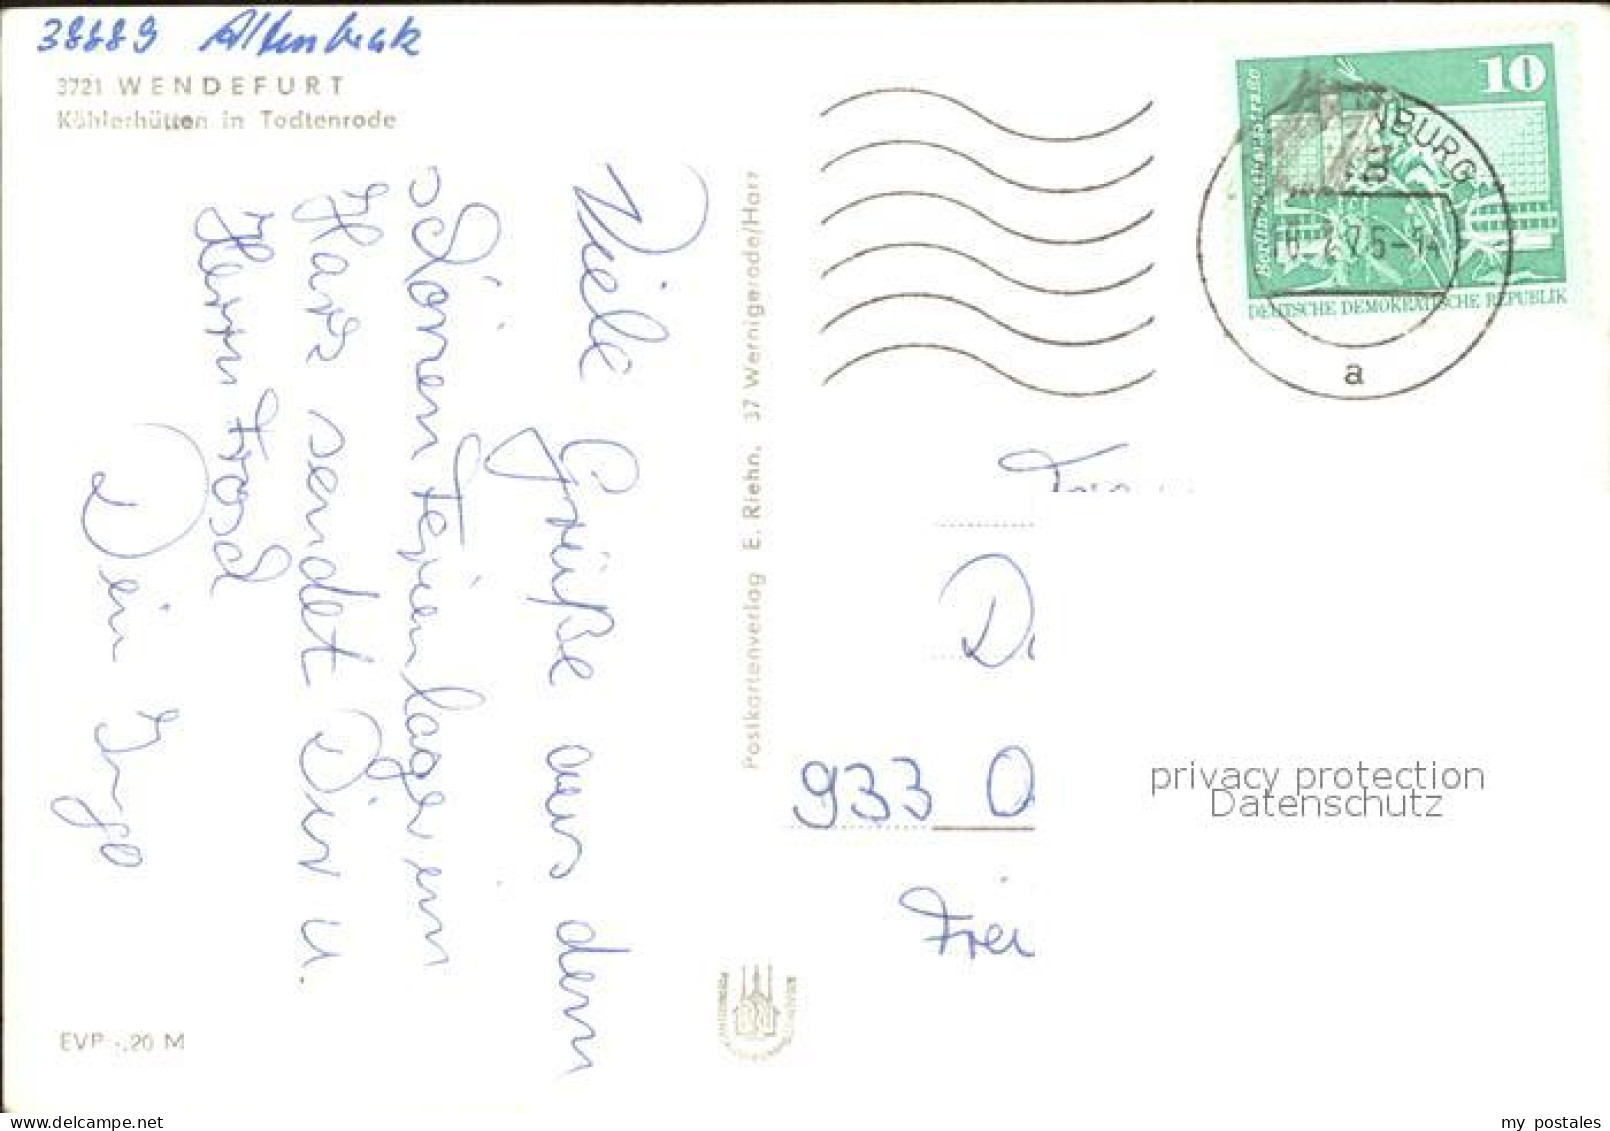 38889 Altenbrak
3721 WENDEFURT
Köhlerhütten in Todtenrode
Viele Grüße aus dem
schönen Ferienlager im
Harz sendet Dir u.
Herrn
Dein Ingo
EVP -,20 M
Postkartenverlag E. Riehn, 37 Wernigerode/Harz
10
DEUTSCHE DEMOKRATISCHE REPUBLIK
NBURG
7.75-14
a
933 O
Frei
privacy protection
Datenschutz
my postales